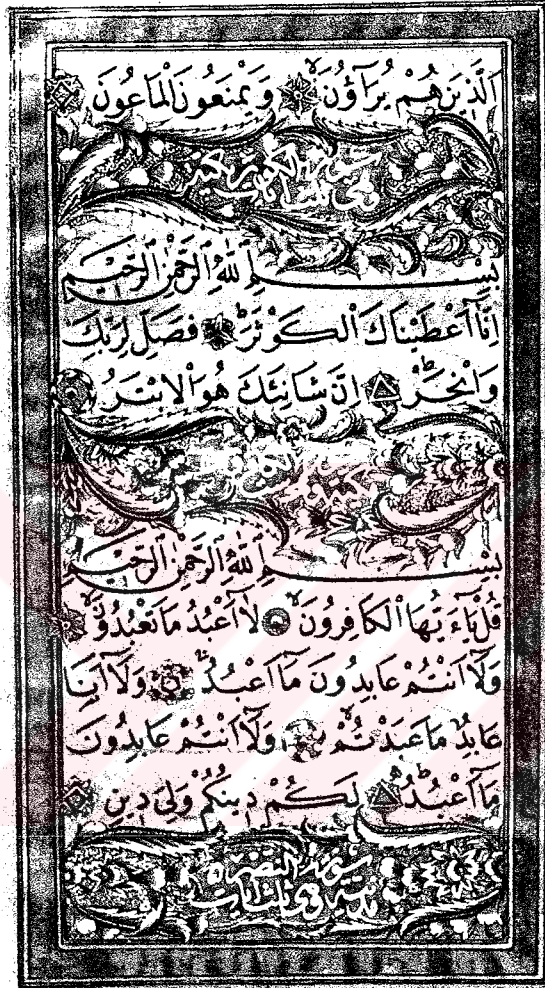 اَلَّذِينَ هُمْ يُرَآؤُنَۙ وَيَمْنَعُونَ الْمَاعُونَ
سورة الكوثر مكية
وهي ثلث ايات
بِسْــمِ اللّٰهِ الرَّحْمٰنِ الرَّحِيمِ
اِنَّٓا اَعْطَيْنَاكَ الْكَوْثَرَۜ فَصَلِّ لِرَبِّكَ
وَانْحَرْۜ اِنَّ شَانِئَكَ هُوَ الْاَبْتَرُ
بِسْــمِ اللّٰهِ الرَّحْمٰنِ الرَّحِيمِ
قُلْ يَٓاءَيُّهَا الْكَافِرُونَۙ لَٓا اَعْبُدُ مَا تَعْبُدُونَۙ
وَلَٓا اَنْتُمْ عَابِدُونَ مَٓا اَعْبُدُۚ وَلَٓا اَنَا
عَابِدٌ مَا عَبَدْتُمْۙ وَلَٓا اَنْتُمْ عَابِدُونَ
مَٓا اَعْبُدُۜ لَكُمْ دِينُكُمْ وَلِيَ دِينِ
سورة النصر